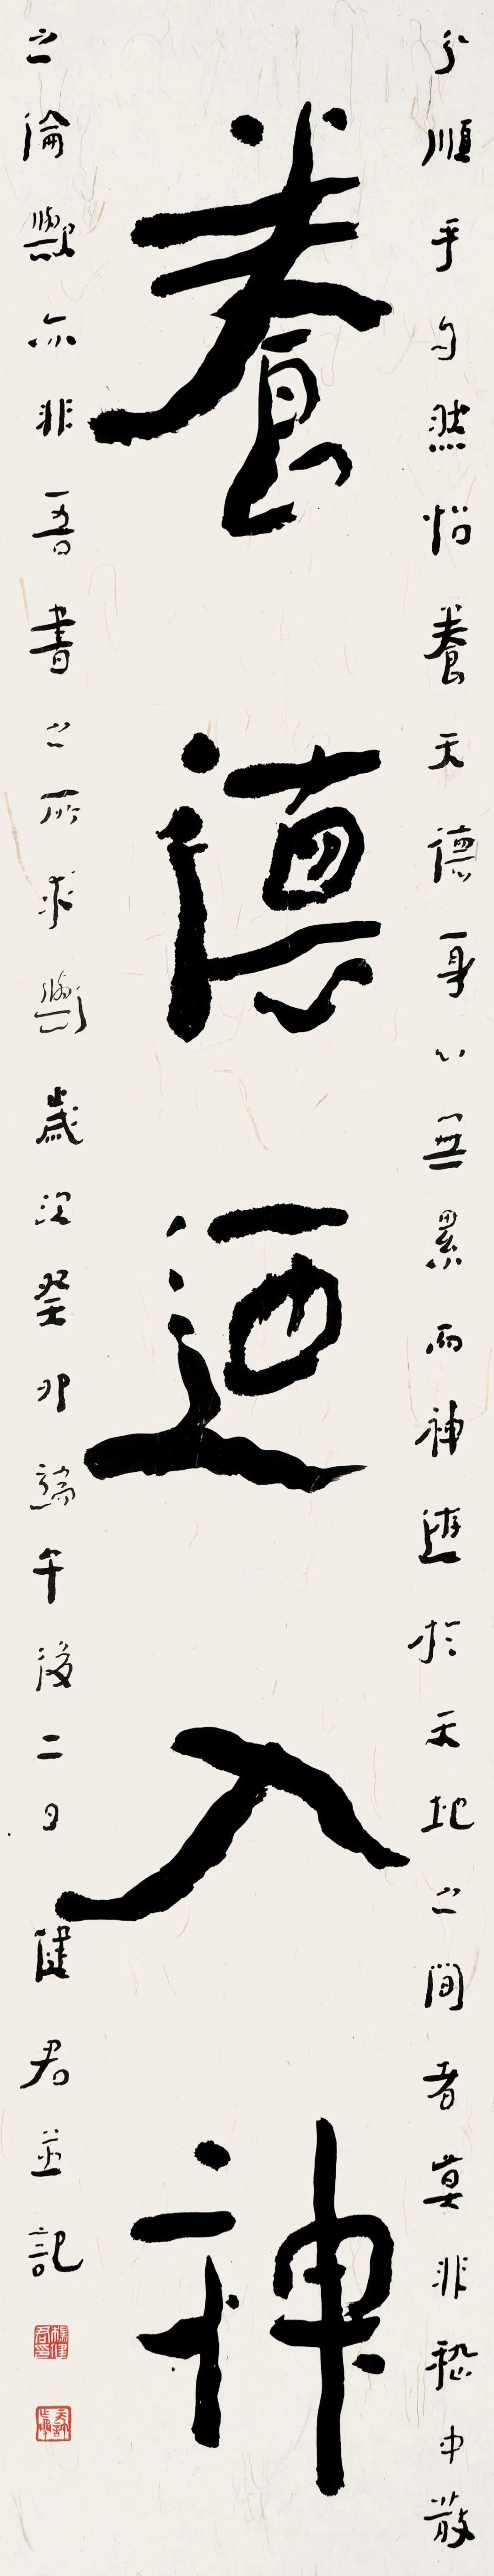 養德迺入神
順乎自然怡養天德身心無累而神遊於天地之間者莫非嵇中散
之倫歟亦非吾書之所求歟歲次癸卯端午後二日健君並記